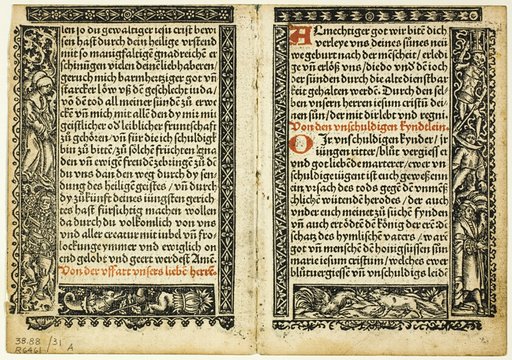 ten jo du gewaltiger iesu crist bewi
sen hast durch dein heilige vrstend
mit so manigfaltige gnadreiche er
schinūgen vielen deinē liebhaberen
geruch mich barmhertziger got vn̄
starcker löw vß dē geschlecht iuda/
vō dē tod all meiner sünde zů erwo
ckē vn̄ mich mit allē den dy mir mi
geistlicher od leiblicher fruntschaft
zu gehören/ vn̄ für die ich schuldig
bin zů bitē/ zů solche früchten lena
den vn̄ ewigē freudē zebringē zů dē
du vns dan den weg durch dy sen
dung des heiligē geistes/ vn̄ durch
dy zůkünft deines iungsten gerich
tes hast fürsichtig machen wollen
da durch du volkomlich von vns
vnd aller creatur mit iubel vn̄ fro
lockunge ymmer vnd ewiglich on
end gelobt vnd geert werdest Amē.
Von der vffart vnsers liebē herrē.
ALmechtiger got wir bitē dich
verleye vns deines sūnes neü
we geburt nach der mēscheit/ erledi
ge vn̄ erlöß vns/ die do vnd dē ioch
der sünden durch die alte dienstbar
keit gehalten werdē. Durch den sel
ben vnsern herren iesum cristū dei
nen sun/ der mit dir lebt vnd regni.
Von den vnschuldigen kyndlein.
OIr vnschuldigen kynder/ ir
iüngen ritter/ blut vergiesser
vnd got liebē de marterer/ ewer vn
schuldige iügent ist euch geweßenn
ein vrsach des tods gegē dē vnmēs
chlichē wütendē herodes/ der auch
vnder euch meint zů sůchē fynden
vn̄ auch ertödtē dē König der erē dē
schatz des hymlischē vaters/ warē
got vn̄ menschē dē honigflüssen sun
marie iesum cristum/ welches ewer
blůtuergiessē vn̄ vnschuldigs leidē
38.88/31
R6461 A